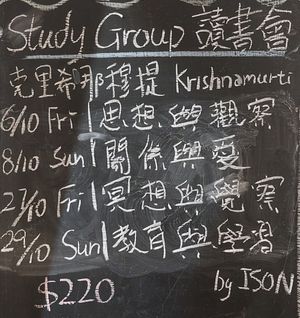 Study Group 讀書會
克里希那穆提 Krishnamurti
6/10 Fri | 思想與觀察
8/10 Sun | 關係與愛
27/10 Fri | 冥想與覺察
29/10 Sun | 教育與學習
$220 by ISON